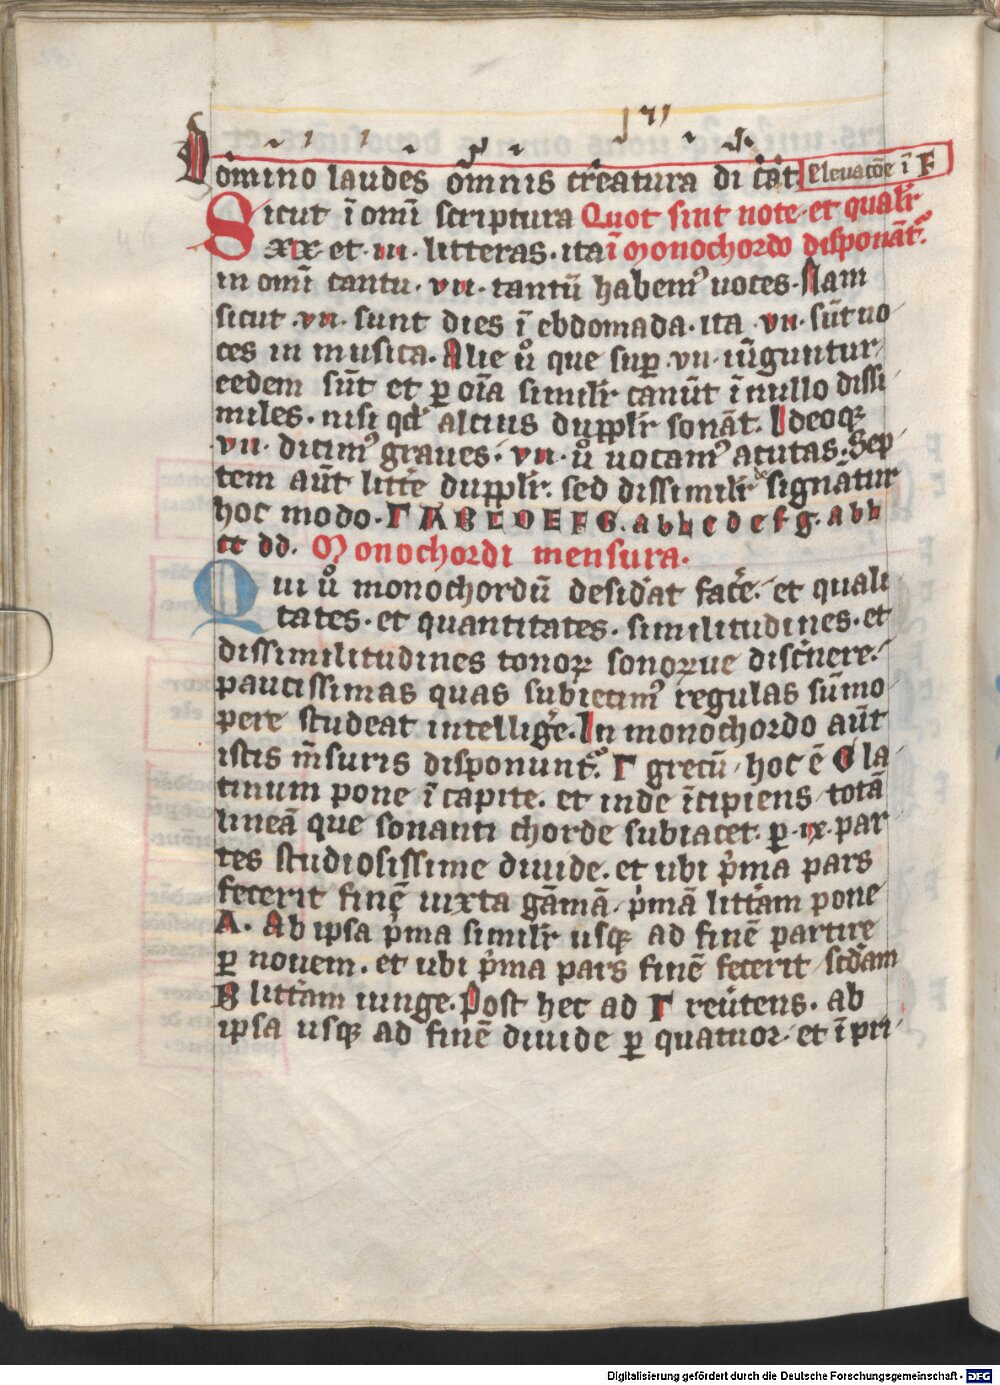 Domino laudes om̄nis creatura di cat Eleuatōe ī F
Sicut ī om̄i scriptura Quot sint note et qualr̄
xx et iiii litteras ita ī monochordo disponāt᷑
in om̄i cantu · vii · tantū habemꝰ uoces · Nam
sicut · vii · sunt dies ī ebdomada · ita · vii · sūt uo
ces in musica. Alie ů que suꝑ · vii · iūguntur
eedem sūt et ꝑ oīa similr̄ canūt ī nullo dissi
miles · nisi qd̓ alcius dupplr̄ sonāt. Ideoqꝫ
· vii · dicimꝰ graues · vii · ů uocamꝰ acutas · Sep
tem aūt litt̓e dupplr̄. sed dissimilr̄ de signātur
hoc modo · Γ A B C D E F G. a b h c d e f g. a b h
cc dd. Monochordi mensura.
Qui ů monochordū desid̓at fac̓e. et quali
tates · et quantitates · similitudines · et
dissimilitudines tonoꝝ sonoꝝue disc̓nere.
paucissimas quas subiecimꝰ regulas sūmo
pere studeat intellig̓e. In monochordo aūt
istis m̄suris disponunt᷑. Γ grecū hoc ē G la
tinum pone ī capite. et inde īcipiens totā
lineā que sonanti chorde subiacet. ꝑ · ix · par
tes studiosissime diuide. et ubi p̓ma pars
fecerit finē iuxta gām̄ā · p̓mā litt̓am pone
A. Ab ipsa p̓ma similr̄ usqꝫ ad finē partire
ꝑ nouem. et ubi p̓ma pars finē fecerit sc̄dam
B litt̓am iunge. Post hec ad Γ reūtens. ab
ipsa usqꝫ ad finē diuide ꝑ quatuor et ī pri
Digitalisierung gefördert durch die Deutsche Forschungsgemeinschaft - DFG